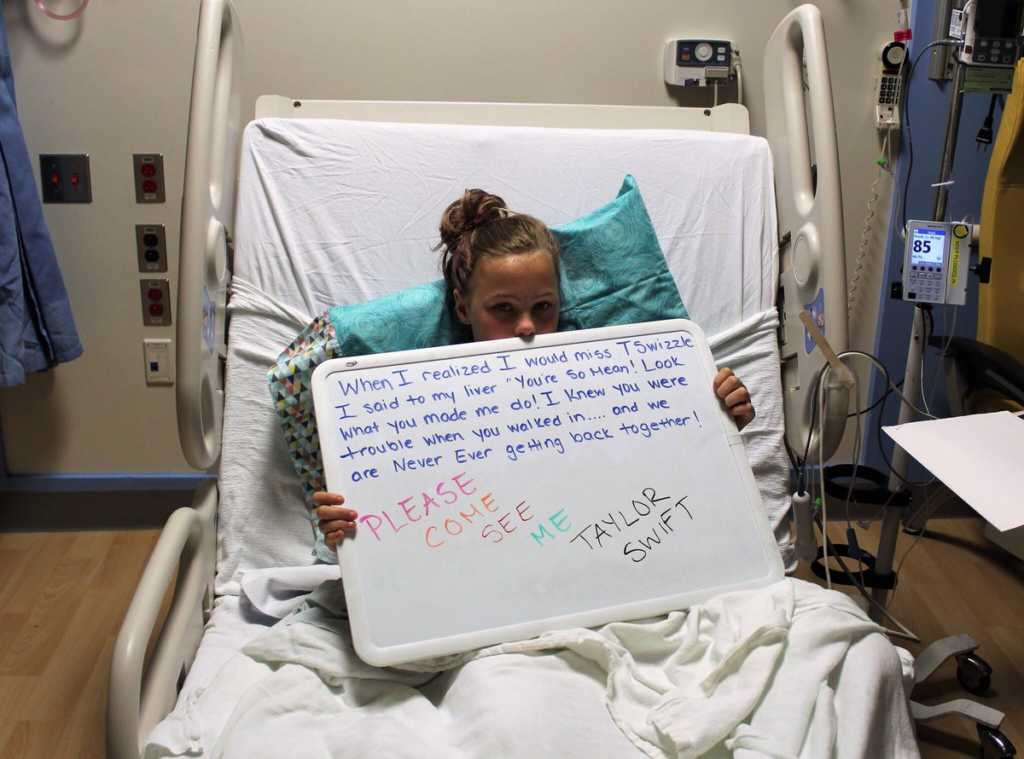 When I realized I would miss TSwizzle
I said to my liver "You're So Mean! Look
what you made me do! I Knew you were
trouble when you walked in.... and we
are Never Ever getting back together!
PLEASE
COME
SEE
ME
TAYLOR
SWIFT
85